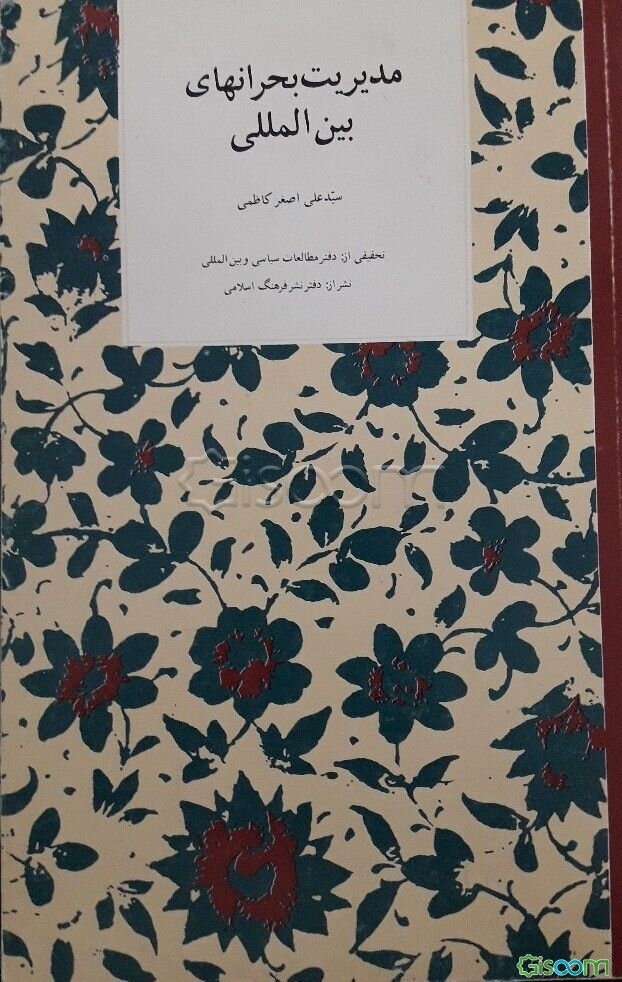 مدیریت بحرانهای
بین المللی
سیّد علی اصغر کاظمی
تحقیقی از: دفتر مطالعات سیاسی و بین المللی
نشر از: دفتر نشر فرهنگ اسلامی
Gisoom
Gisoom